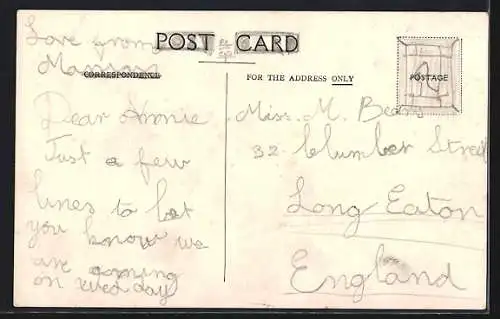 Love from
POST CARD
Mamam
CORRESPONDENCE
FOR THE ADDRESS ONLY
POSTAGE
Dear Annie
Just a few
lines to let
you know we
are coming
on
Miss. M.
32 Clumber Street
Long Eaton
England